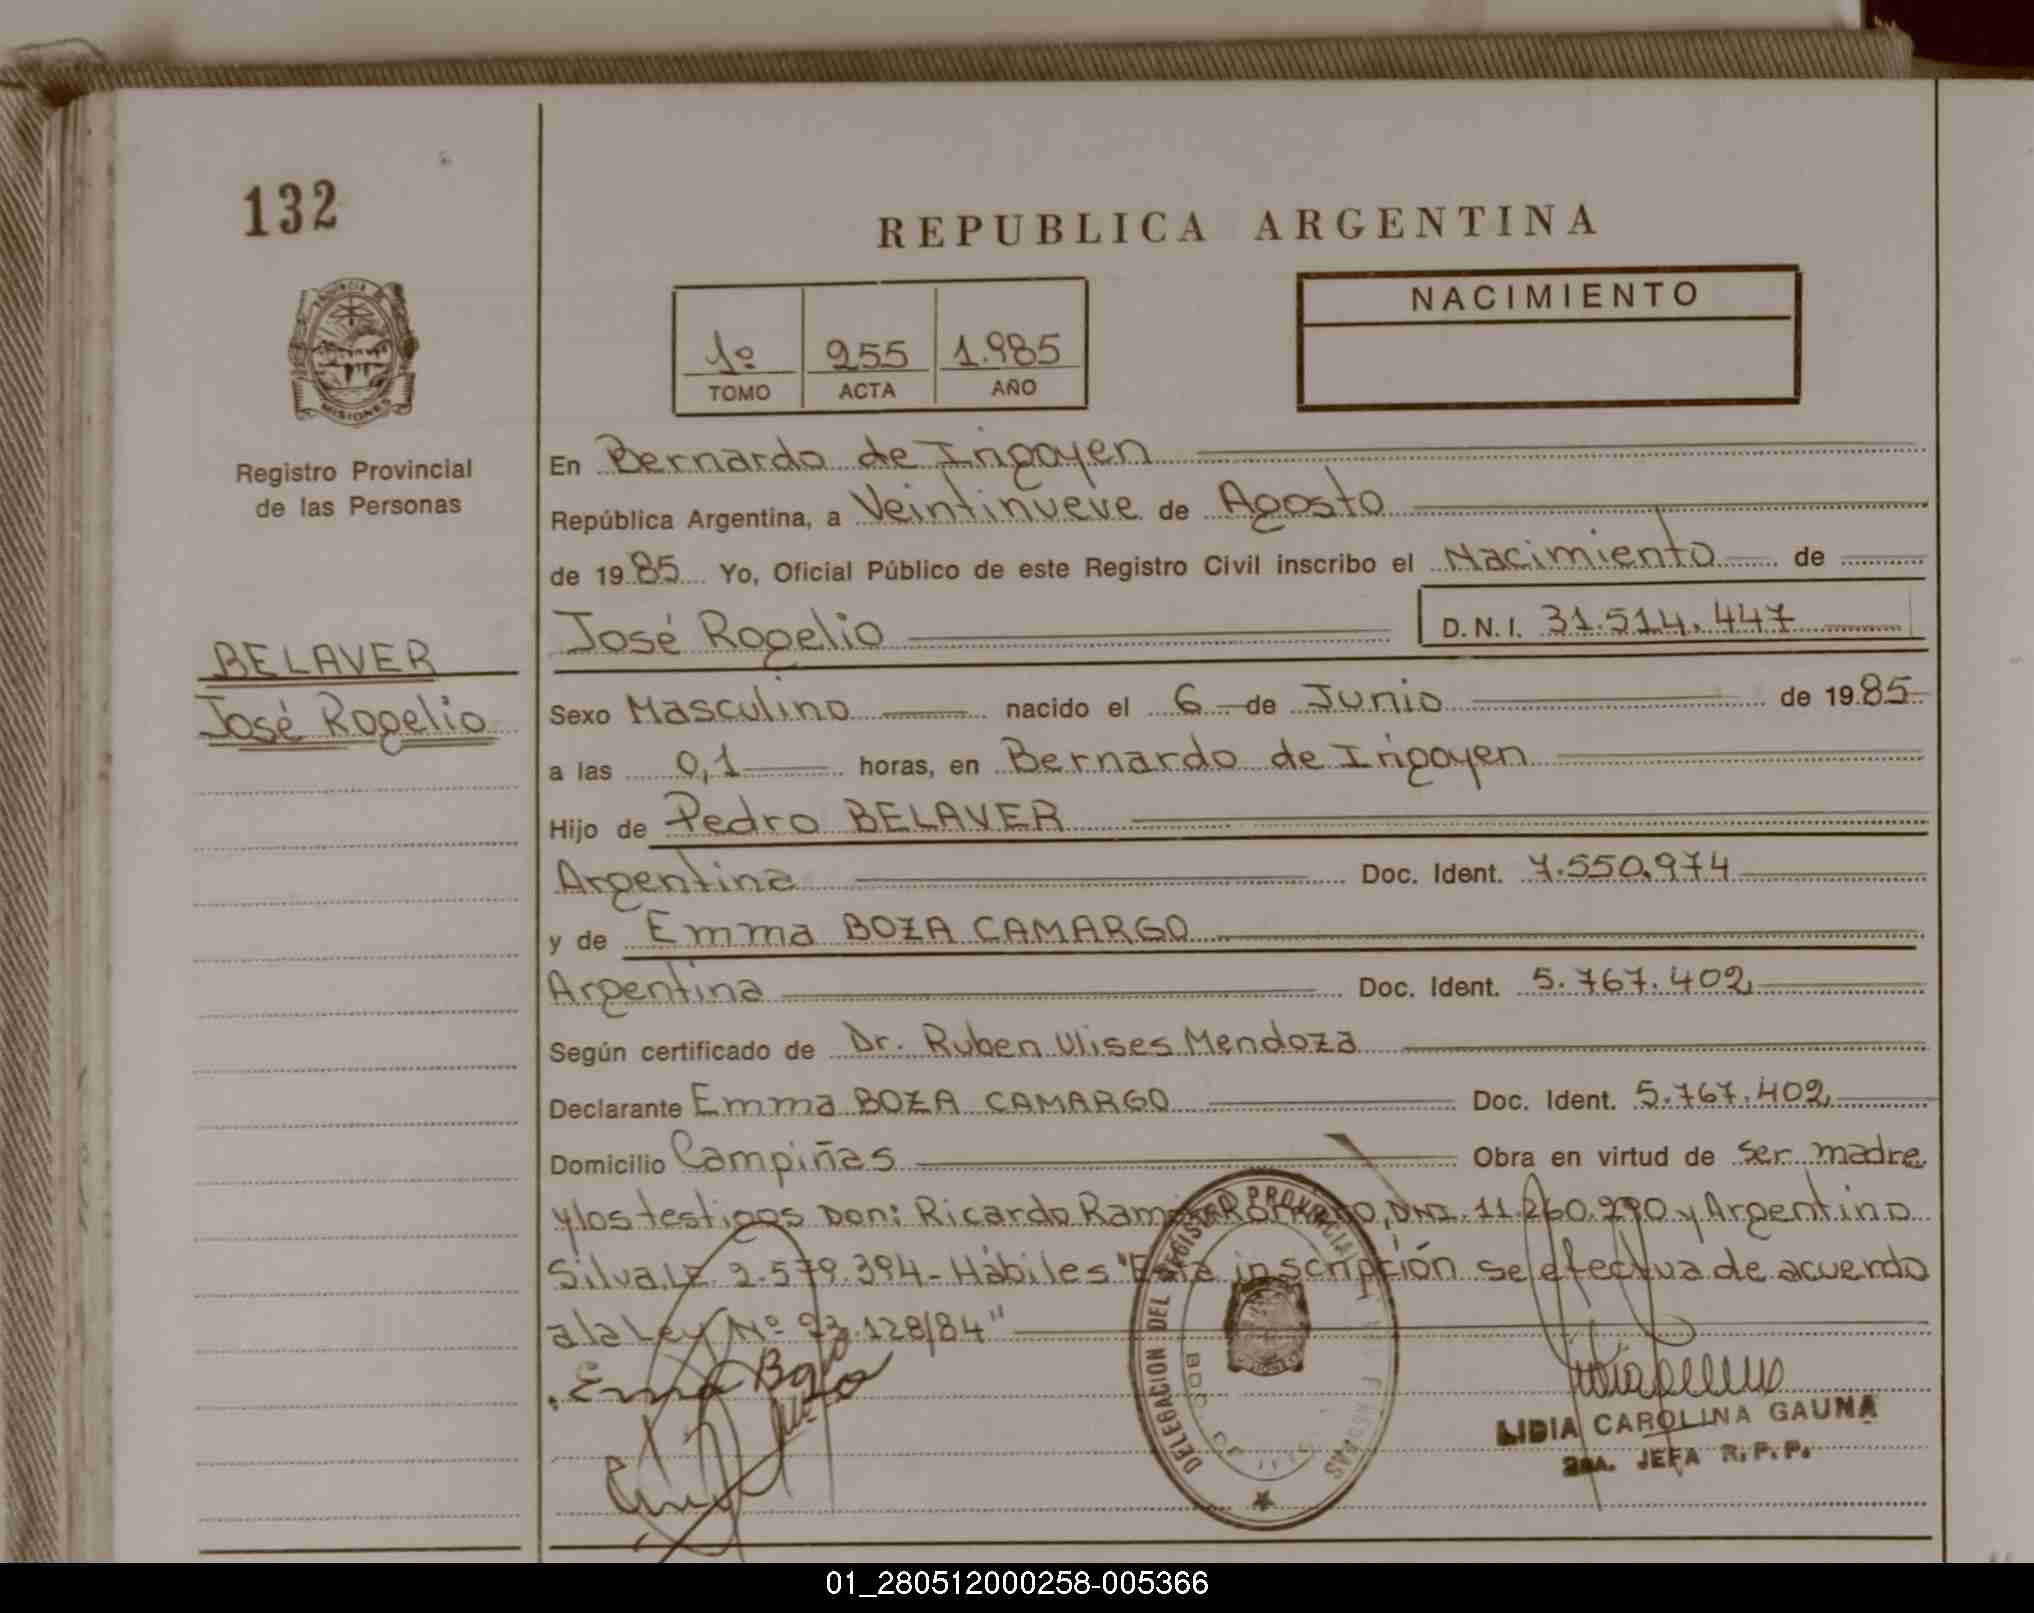 132
REPUBLICA ARGENTINA
NACIMIENTO
1º 255 1.985
TOMO ACTA AÑO
PROVINCIA DE
MISIONES
Registro Provincial
de las Personas
En Bernardo de Irigoyen
República Argentina, a Veintinueve de Agosto
de 1985 Yo, Oficial Público de este Registro Civil inscribo el Nacimiento de
José Rogelio D.N.I. 31.514.447
BELAVER
José Rogelio
Sexo Masculino nacido el 6 de Junio de 1985
a las 0,1 horas, en Bernardo de Irigoyen
Hijo de Pedro BELAVER
Argentina Doc. Ident. 7.550.974
y de Emma BOZA CAMARGO
Argentina Doc. Ident. 5.767.402
Según certificado de Dr. Ruben Ulises Mendoza
Declarante Emma BOZA CAMARGO Doc. Ident. 5.767.402
Domicilio Campiñas Obra en virtud de ser madre
y los testigos Don: Ricardo DNI. 11.260.290 y Argentino
Silva LE 2.579.394 - Hábiles "Esta inscripción se efectua de acuerdo
a la Ley Nº 23.128/84"
Emma Boza
DELEGACION DEL REGISTRO PROVINCIAL
LIDIA CAROLINA GAUNA
2da. JEFA R.P.P.
01_280512000258-005366